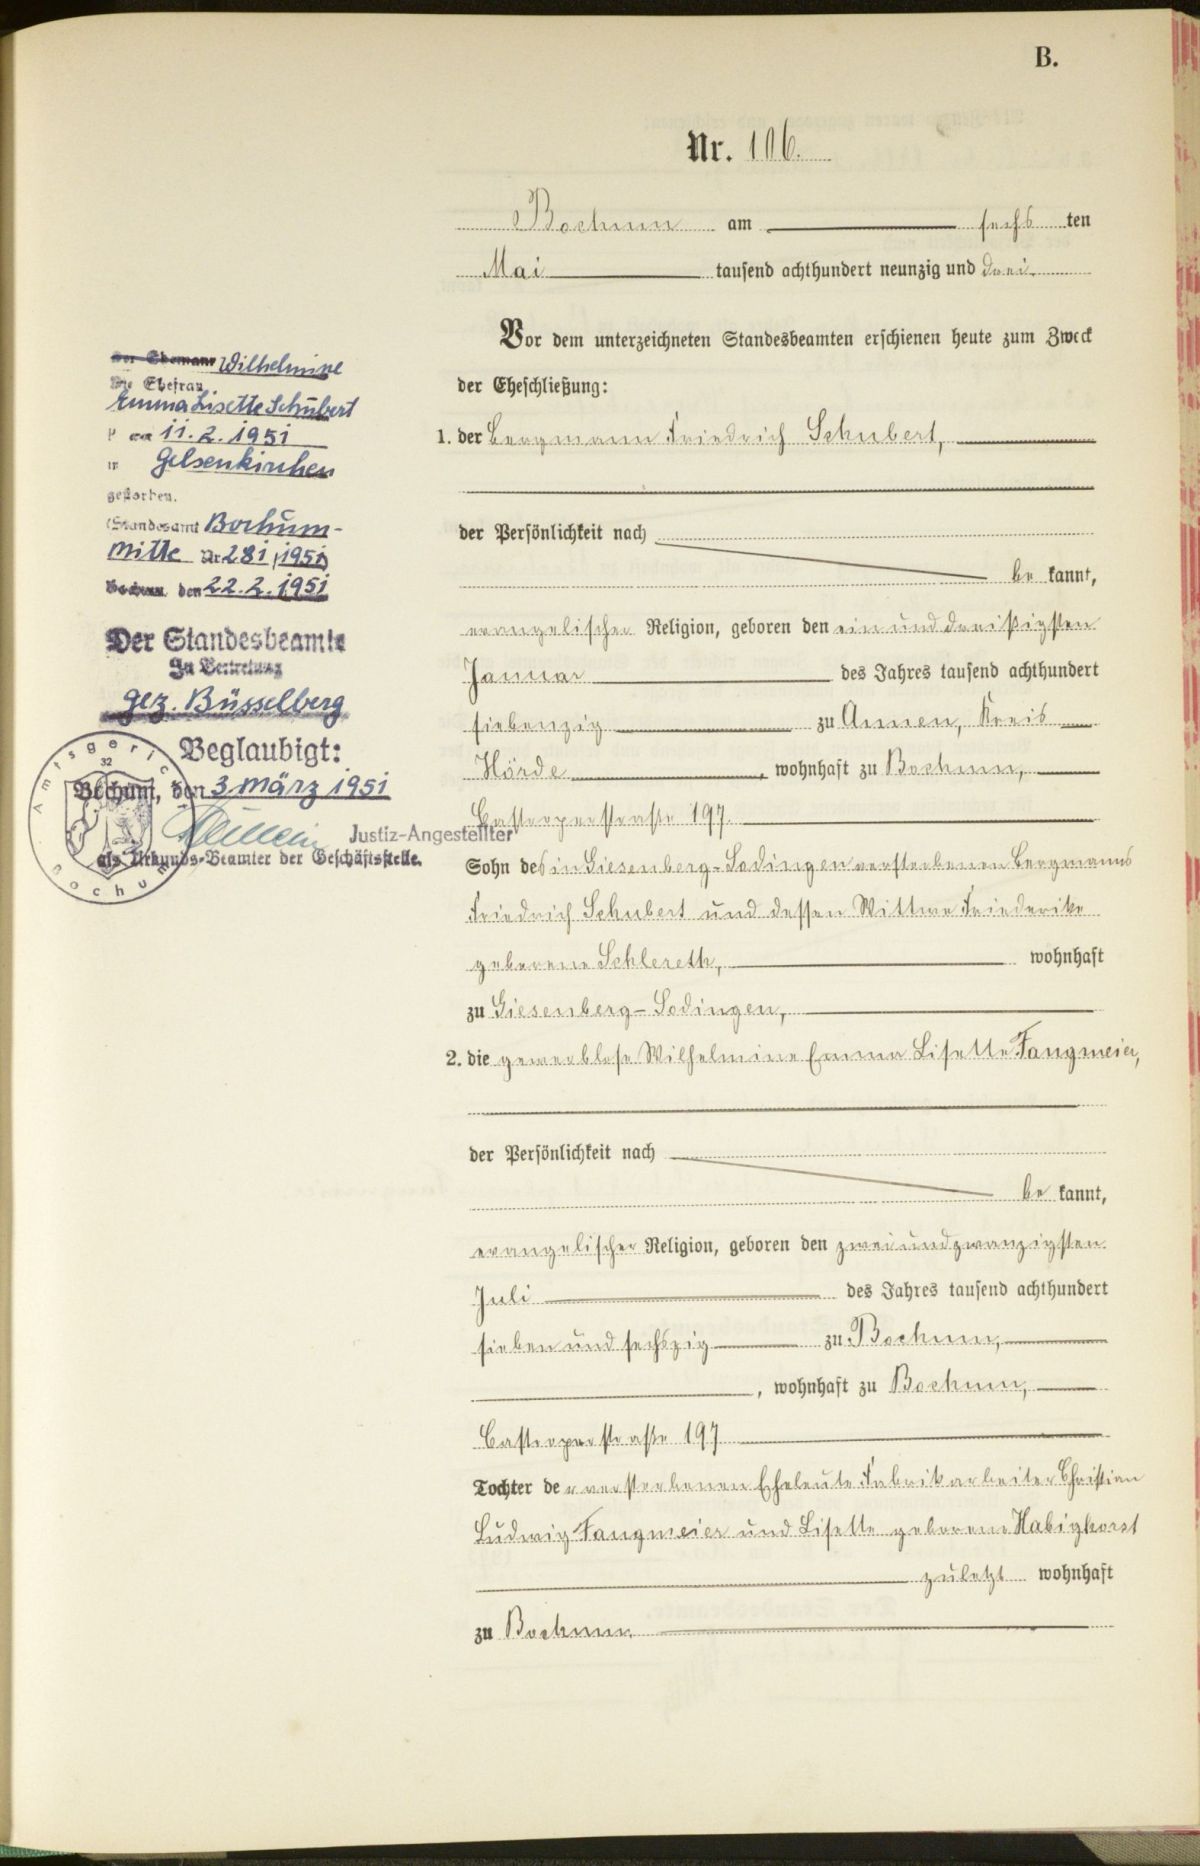 B.
Nr. 106.
Bochum am sechs ten
Mai tausend achthundert neunzig und drei
Vor dem unterzeichneten Standesbeamten erschienen heute zum Zweck
der Eheschließung:
1. der Bergmann Friedrich Schubert,
der Persönlichkeit nach
be kannt,
evangelischer Religion, geboren den ein und dreißigsten
Januar des Jahres tausend achthundert
siebenzig zu Annen, Kreis
Hörde, wohnhaft zu Bochum,
Castroperstraße 197.
Sohn des in Giesenberg-Sodingen verstorbenen Bergmanns
Friedrich Schubert und dessen Wittwe Friederike
geborene Schlereth, wohnhaft
zu Giesenberg-Sodingen,
2. die gewerblose Wilhelmine Emma Lisette Fangmeier,
der Persönlichkeit nach
be kannt,
evangelischer Religion, geboren den zwei und zwanzigsten
Juli des Jahres tausend achthundert
sieben und sechszig zu Bochum,
, wohnhaft zu Bochum,
Castroperstraße 197
Tochter der verstorbenen Eheleute Fabrikarbeiter Christian
Ludwig Fangmeier und Lisette geborene Habighorst
zuletzt wohnhaft
zu Bochum
Der Ehemann Wilhelmine
Die Ehefrau
Emma Lisette Schubert
am 11.2.1951
in Gelsenkirchen
gestorben.
(Standesamt Bochum-
Mitte Nr 281/1951)
Bochum den 22.2.1951
Der Standesbeamte
In Vertretung
gez. Büsselberg
Beglaubigt:
Bochum, den 3 März 1951
Justiz-Angestellter
als Urkunds-Beamter der Geschäftsstelle.
Amtsgericht
32
Bochum